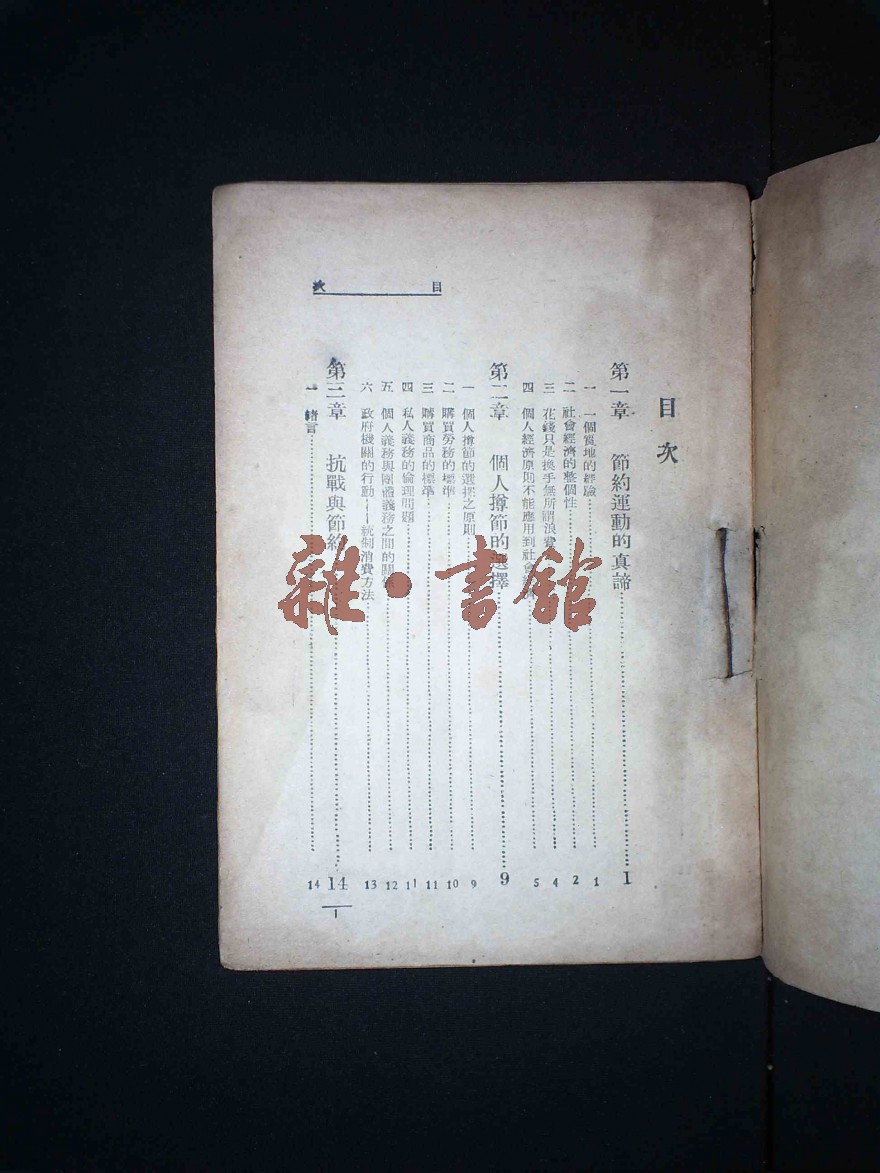 目次
目次
第一章 節約運動的真諦 1
一 一個實地的經驗 1
二 社會經濟的整個性 2
三 花錢只是換手無所謂浪費 4
四 個人經濟原則不能應用到社會 5
第二章 個人撙節的選擇 9
一 個人撙節的選擇之原則 9
二 購買勞務的標準 10
三 購買商品的標準 11
四 私人義務的倫理問題 11
五 個人義務與團體義務之間的關係 12
六 政府機關的行動——統制消費方法 13
第三章 抗戰與節約 14
一 緒言 14
1
雜·書館